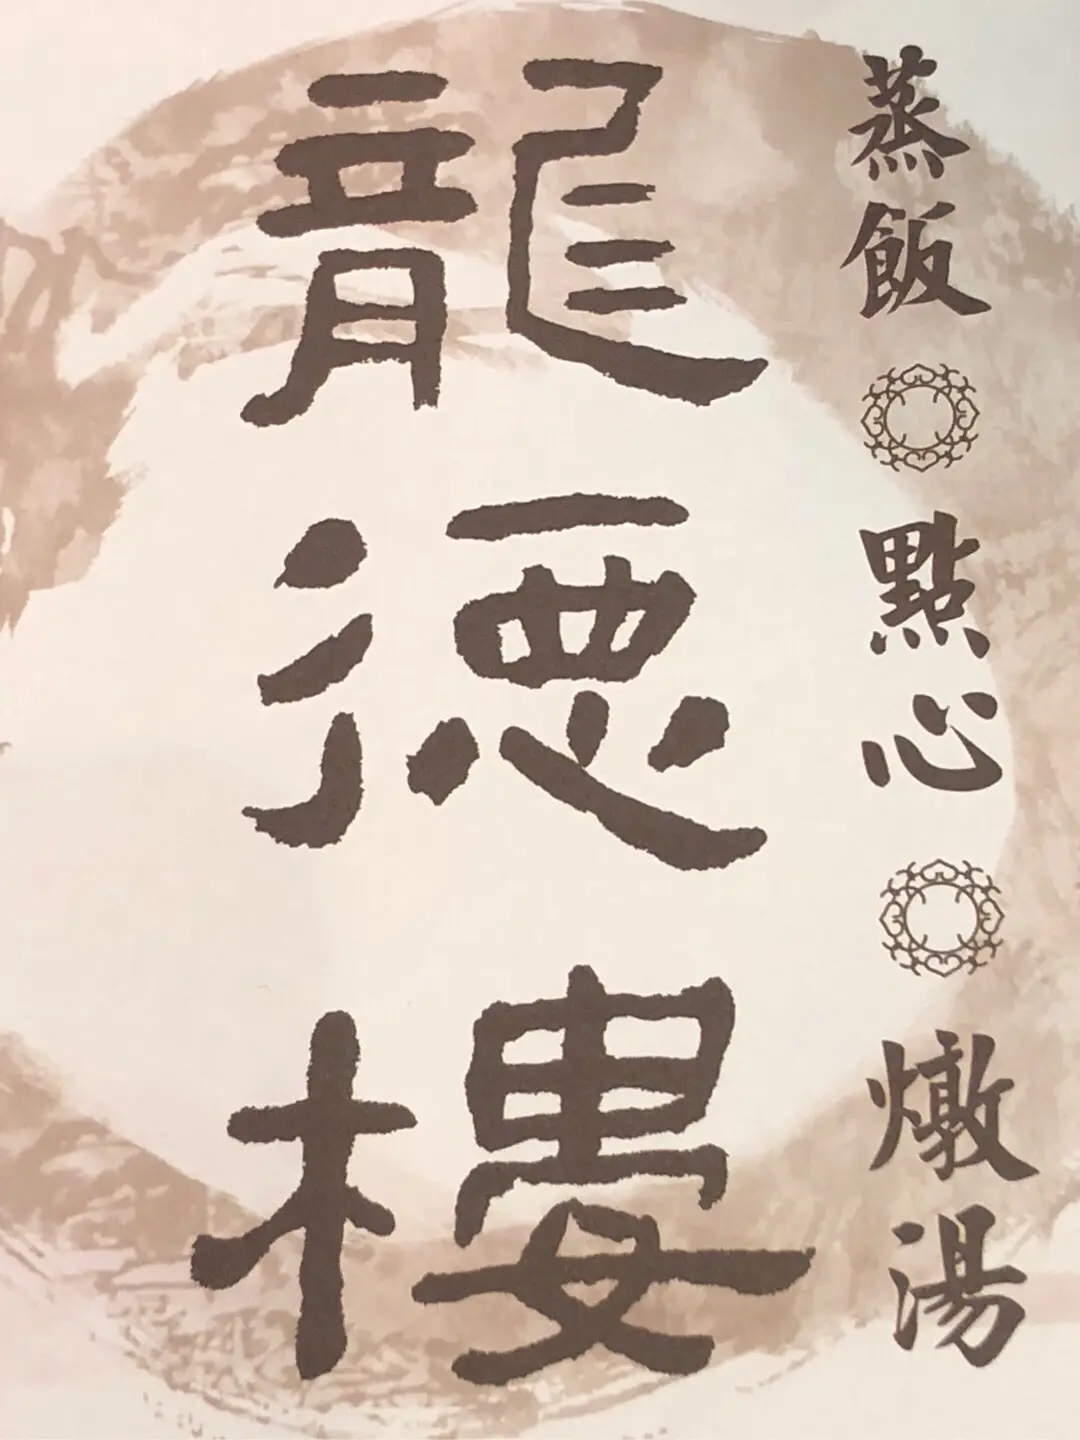 蒸飯 點心 燉湯
龍德樓